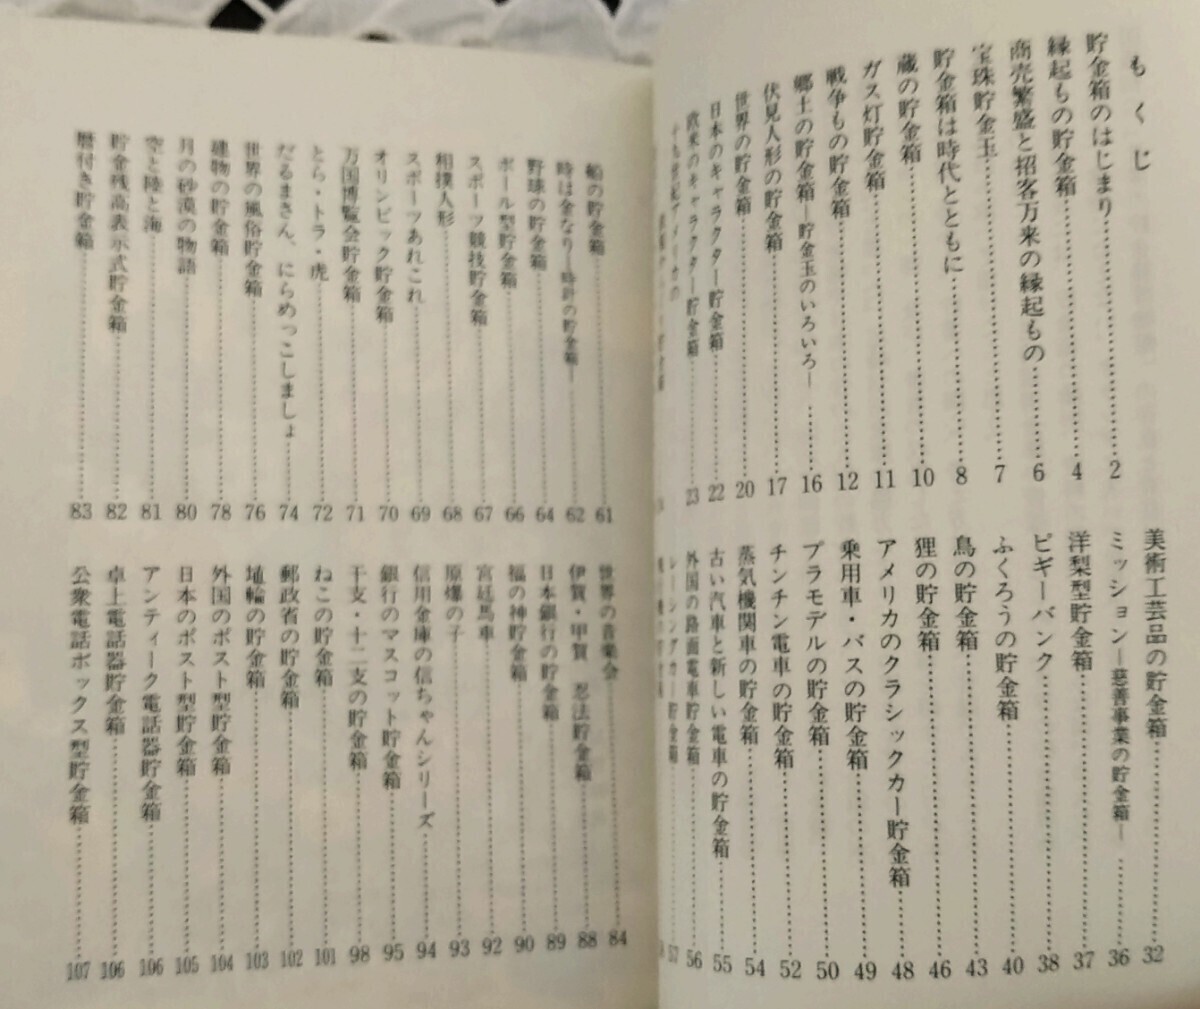 もくじ
貯金箱のはじまり……2
縁起もの貯金箱……4
商売繁盛と招客万来の縁起もの……6
宝珠貯金玉……7
貯金箱は時代とともに……8
蔵の貯金箱……10
ガス灯貯金箱……11
戦争もの貯金箱……12
郷土の貯金箱―貯金玉のいろいろ―……16
伏見人形の貯金箱……17
世界の貯金箱……20
日本のキャラクター貯金箱……22
欧米のキャラクター貯金箱……23
十九世紀アメリカの
美術工芸品の貯金箱……32
ミッション―慈善事業の貯金箱―……36
洋梨型貯金箱……37
ピギーバンク……38
ふくろうの貯金箱……40
鳥の貯金箱……43
狸の貯金箱……46
アメリカのクラシックカー貯金箱……48
乗用車・バスの貯金箱……49
プラモデルの貯金箱……50
チンチン電車の貯金箱……52
蒸気機関車の貯金箱……54
古い汽車と新しい電車の貯金箱……55
外国の路面電車貯金箱……56
レーシングカー貯金箱……57
船の貯金箱……61
時は金なり―時計の貯金箱―……62
野球の貯金箱……64
ボール型貯金箱……66
スポーツ競技貯金箱……67
相撲人形……68
スポーツあれこれ……69
オリンピック貯金箱……70
万国博覧会貯金箱……71
とら・トラ・虎……72
だるまさん、にらめっこしましょ……74
世界の風俗貯金箱……76
建物の貯金箱……78
月の砂漠の物語……80
空と陸と海……81
貯金残高表示式貯金箱……82
暦付き貯金箱……83
世界の音楽会……84
伊賀・甲賀　忍法貯金箱……88
日本銀行の貯金箱……89
福の神貯金箱……90
宮廷馬車……92
原爆の子……93
信用金庫の信ちゃんシリーズ……94
銀行のマスコット貯金箱……95
干支・十二支の貯金箱……98
ねこの貯金箱……101
郵政省の貯金箱……102
埴輪の貯金箱……103
外国のポスト型貯金箱……104
日本のポスト型貯金箱……105
アンティーク電話器貯金箱……106
卓上電話器貯金箱……106
公衆電話ボックス型貯金箱……107